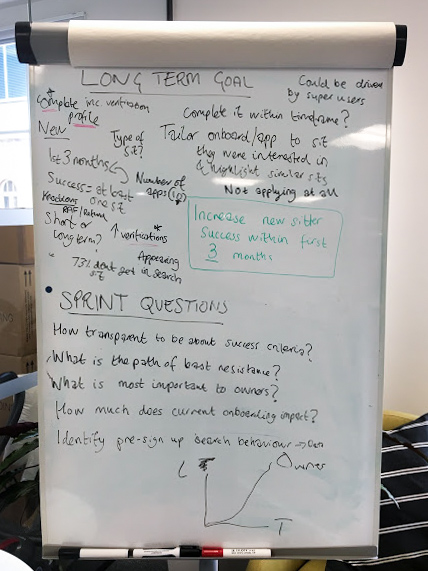 LONG TERM GOAL
Could be driven
by super users
Complete inc. verification
profile
Complete it within timeframe?
New
Type of
sit?
Tailor onboard/app to sit
they were interested in
& highlight similar sits
Not applying at all
1st 3 months
Number of
apps
Success = at least
one sit
Short or
long term?
↑ verifications *
Appearing
in search
73% don't get
sit
Increase new sitter
success within first
3 months
SPRINT QUESTIONS
How transparent to be about success criteria?
What is the path of least resistance?
What is most important to owners?
How much does current onboarding impact?
Identify pre-sign up search behaviour →
L
Owner
T